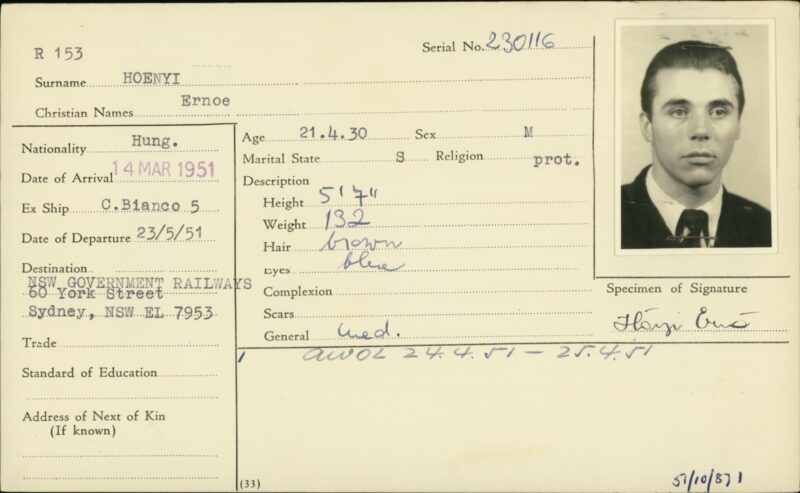 R 153
Serial No. 230116
Surname HOENYI
Christian Names Ernoe
Nationality Hung.
Date of Arrival 14 MAR 1951
Ex Ship C.Bianco 5
Date of Departure 23/5/51
Destination
NSW GOVERNMENT RAILWAYS
60 York Street
Sydney, NSW EL 7953
Trade
Standard of Education
Address of Next of Kin
(If known)
Age 21.4.30 Sex M
Marital State S Religion prot.
Description
Height 5'7"
Weight 132
Hair brown
Eyes blue
Complexion
Scars
General med.
AWOL 24.4.51 - 25.4.51
(33)
Specimen of Signature